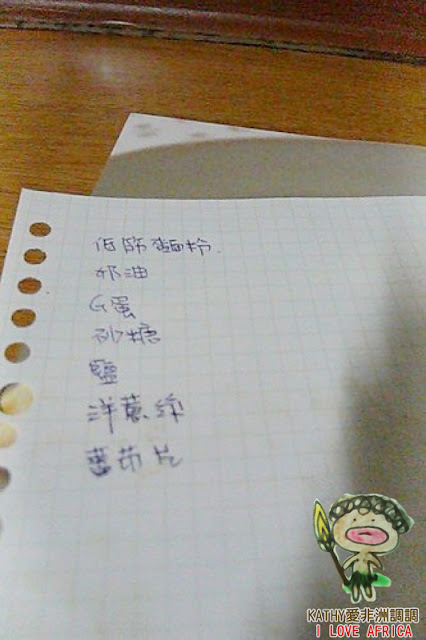 低筋麵粉.
奶油
G蛋
砂糖
鹽
洋蔥絲
蕃茄片
KATHY愛非洲調調
I LOVE AFRICA